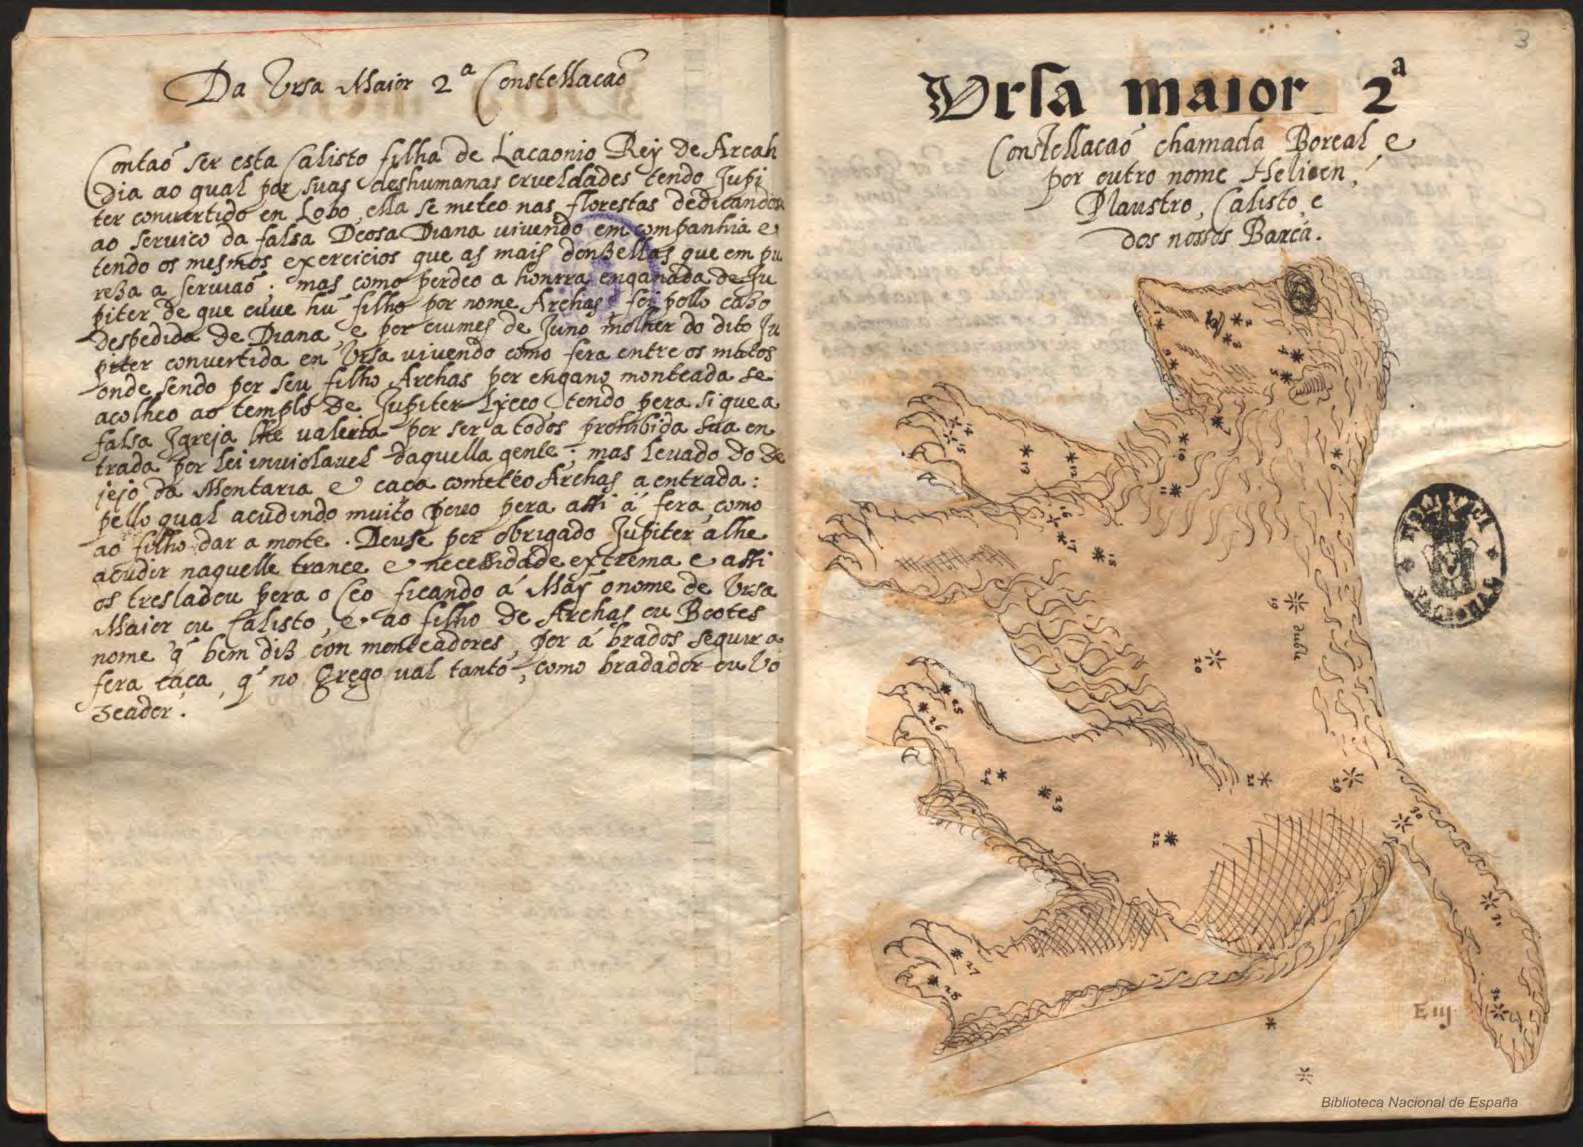 Da Ursa Maior 2ª Constellacaõ
Contaõ ser esta Calisto filha de Lacaonio Rey de Arcah
dia ao qual por suas deshumanas crueldades tendo Jupi
ter convertido en Lobo, ella se meteo nas florestas dedicandose
ao serviço da falsa Deosa Diana vivendo em companhia e
tendo os mesmos exercicios que as mais donzellas que em pu
reza a serviaõ: mas como perdeo a honrra enganada de Ju
piter de que euve hu filho por nome Archas foi pello cazo
despedida de Diana, e por ciumes de Juno molher do dito Ju
piter convertida en Ursa vivendo como fera entre os matos
onde sendo por seu filho Archas por engano monteada se
acolheo ao templo de Jupiter Lyceo, tendo pera si que a
falsa Igreja lhe valeria por ser a todos prohibida sua en
trada por lei inviolavel daquella gente; mas levado do de
jejo da Montaria e caça cometeo Archas a entrada:
pello qual acudindo muito povo pera assi á fera, como
ao filho dar a morte. Deuse por obrigado Jupiter a lhe
acudir naquelle trance e necessidade extrema e assi
os tresladou pera o Ceo ficando á Maỹ o nome de Ursa
Maior ou Calisto, e ao filho de Archas ou Bootes
nome q̃ bem diz con monteadores, por á brados seguir a
fera caça, q̃ no Grego val tanto, como bradador ou Vo
zeador.
3
Ursa maior 2ª
Constellacaõ chamada Boreal e
por outro nome Helicen,
Plaustro, Calisto, e
dos nossos Barca.
1
2
3
4
5
6
7
10
11
12
13
14
15
16
17
18
19 duble
20
21
22
23
24
25
26
27
28
29
30
31
32
E iij
Biblioteca Nacional de España